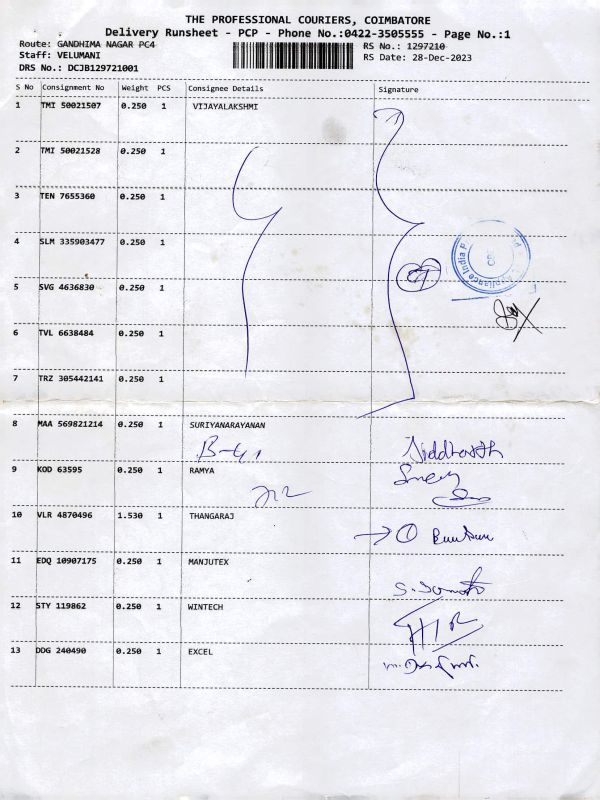 THE PROFESSIONAL COURIERS, COIMBATORE
Delivery Runsheet - PCP - Phone No.:0422-3505555 - Page No.:1
Route: GANDHIMA NAGAR PC4 RS No.: 1297210
Staff: VELUMANI RS Date: 28-Dec-2023
DRS No.: DCJB129721001
S No Consignment No Weight PCS Consignee Details Signature
1 TMI 50021507 0.250 1 VIJAYALAKSHMI
2 TMI 50021528 0.250 1
3 TEN 7655360 0.250 1
4 SLM 335903477 0.250 1
5 SVG 4636830 0.250 1
6 TVL 6638484 0.250 1
7 TRZ 305442141 0.250 1
8 MAA 569821214 0.250 1 SURIYANARAYANAN
Siddharth
9 KOD 63595 0.250 1 RAMYA
10 VLR 4870496 1.530 1 THANGARAJ
11 EDQ 10907175 0.250 1 MANJUTEX
12 STY 119862 0.250 1 WINTECH
13 DDG 240490 0.250 1 EXCEL